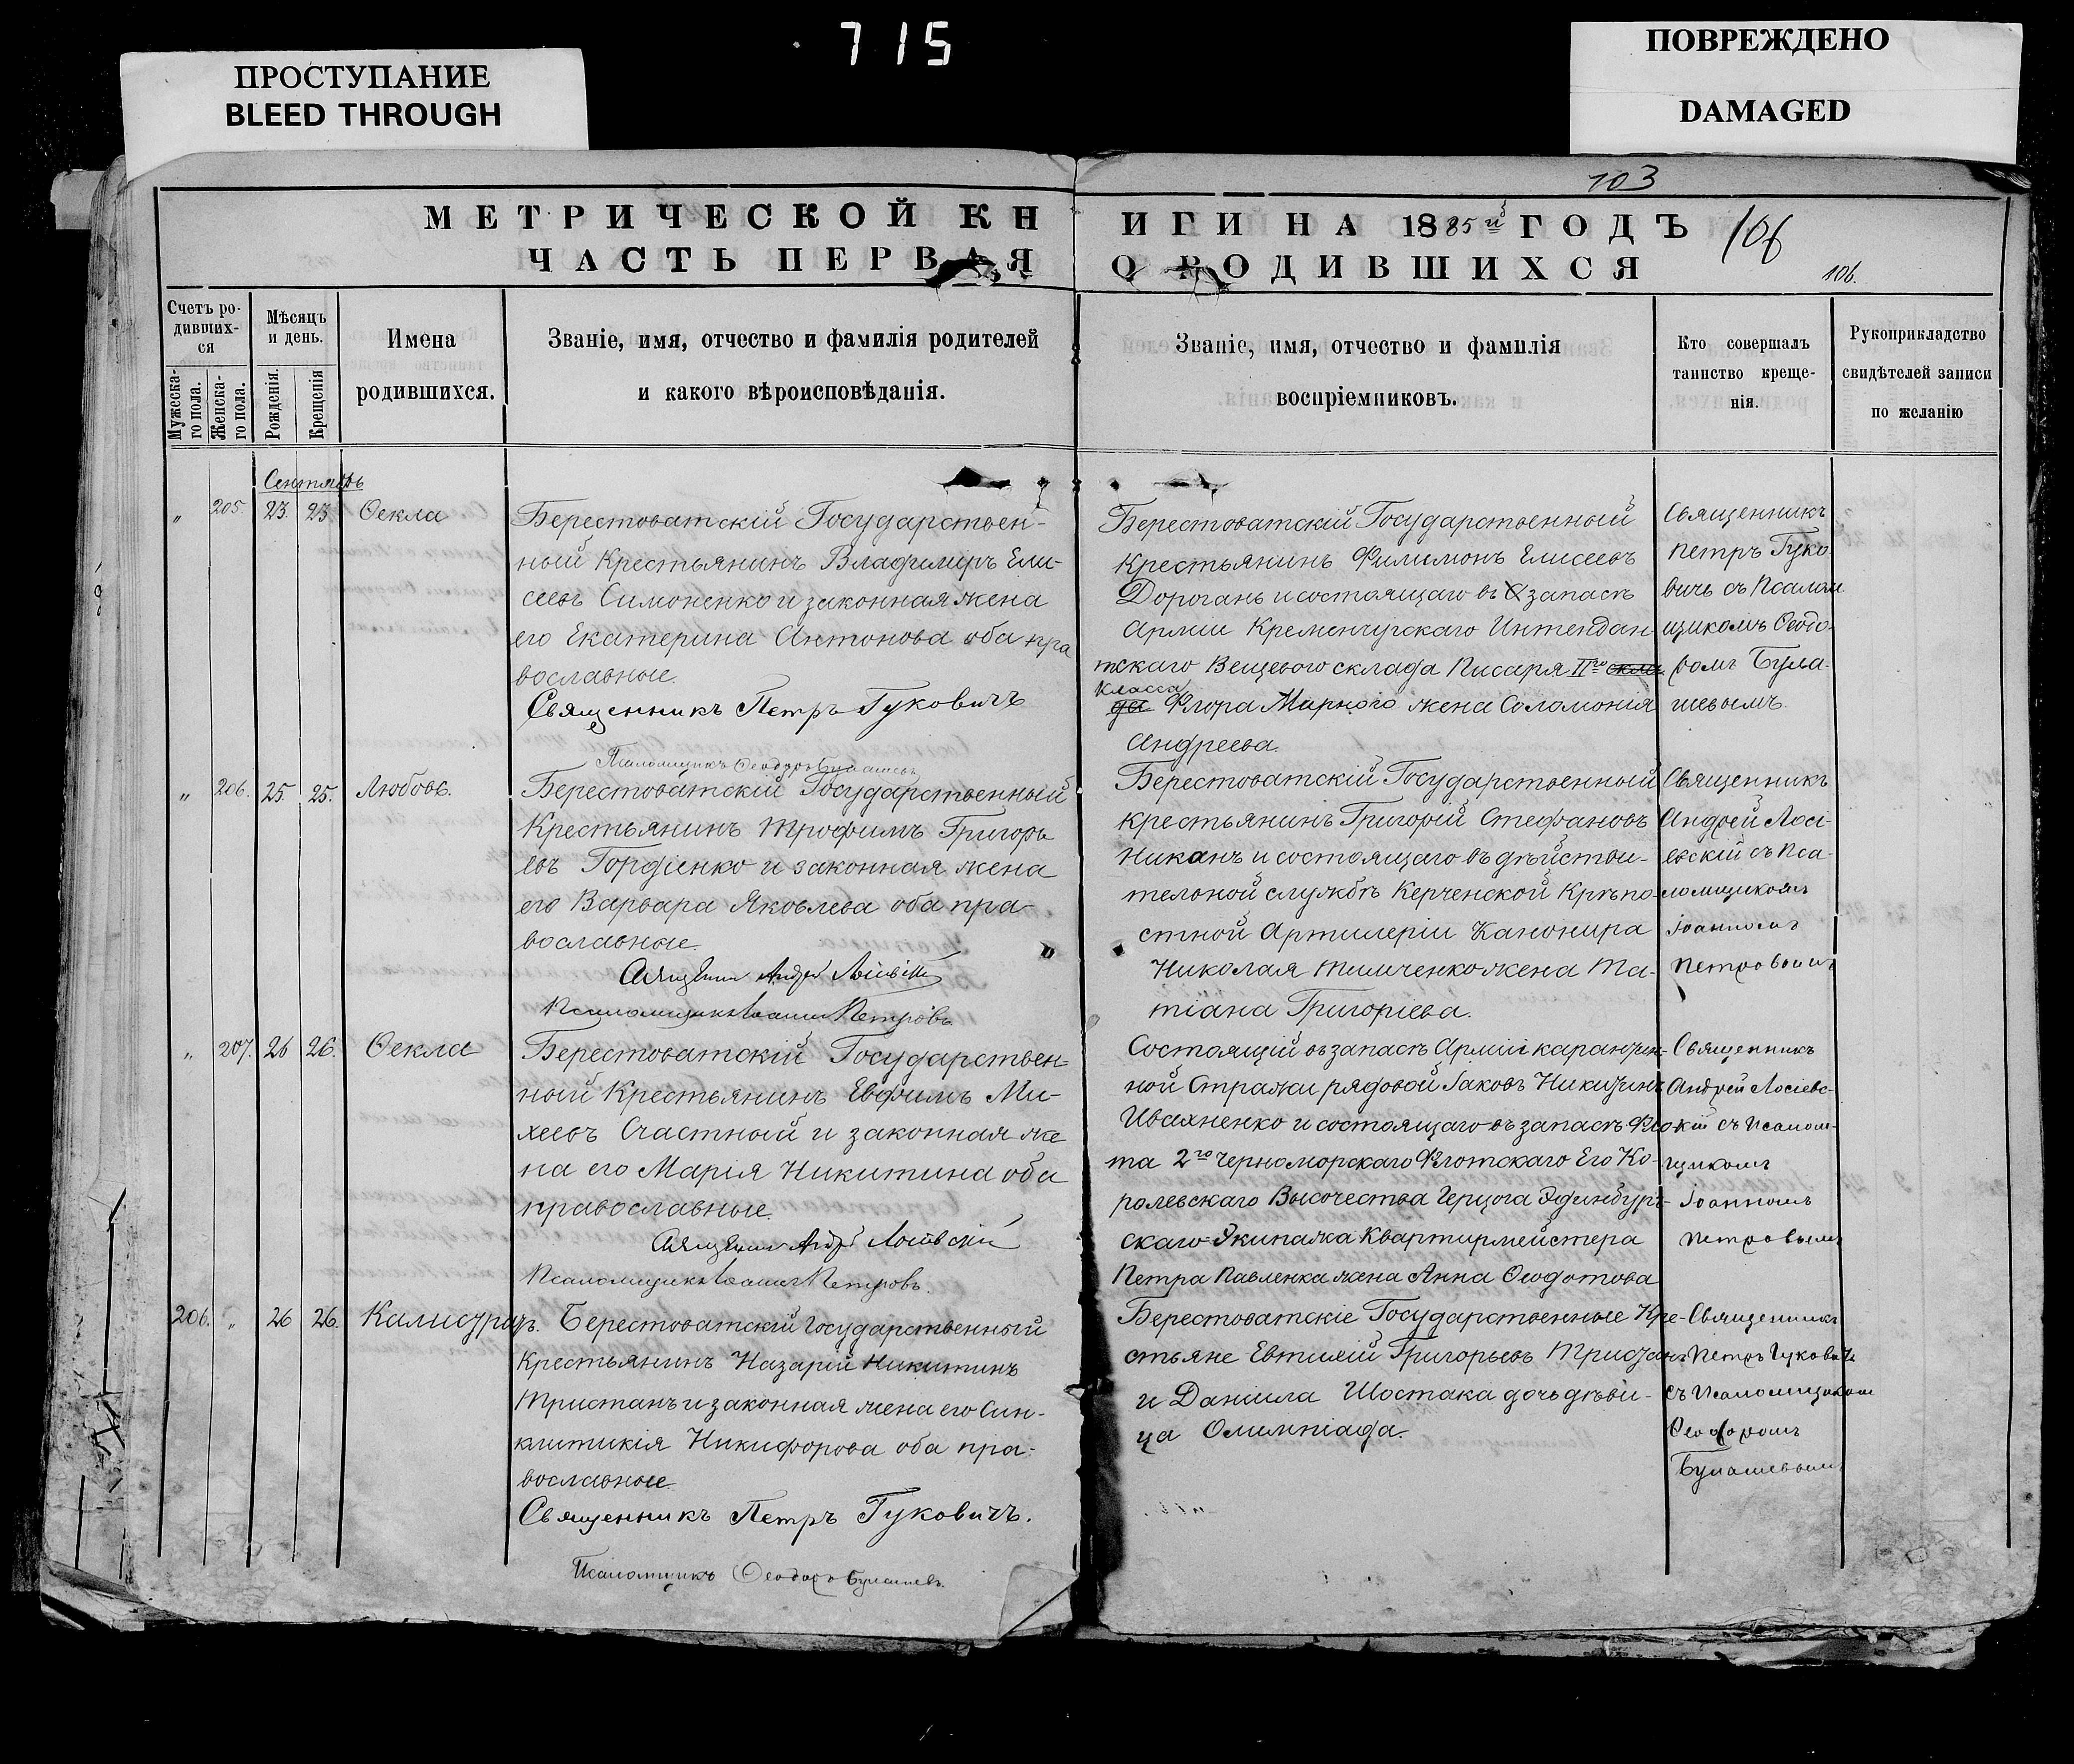 715
ПРОСТУПАНИЕ
BLEED THROUGH
ПОВРЕЖДЕНО
DAMAGED
103
МЕТРИЧЕСКОЙ КН
ИГИ НА 1885й ГОДЪ
106
ЧАСТЬ ПЕРВАЯ
О РОДИВШИХСЯ
106.
Счетъ ро-
дивших-
ся
Мужеска-
го пола.
Женска-
го пола.
Мѣсяцъ
и день.
Рожденія.
Крещенія
Имена
родившихся.
Званіе, имя, отчество и фамилія родителей
и какого вѣроисповѣданія.
Званіе, имя, отчество и фамилія
воспріемниковъ.
Кто совершалъ
таинство креще-
нія.
Рукоприкладство
свидѣтелей записи
по желанію
Сентябрь
„ 205. 23. 23 Ѳекла
Берестоватскій Государствен-
ный Крестьянинъ Владимиръ Ели-
сеевъ Симоненко и законная жена
его Екатерина Антонова оба пра
вославные.
Священникъ Петръ Гуковичъ
Псаломщикъ Ѳеодоръ Булашевъ
Берестоватскій Государственный
Крестьянинъ Филимонъ Елисеевъ
Дорогань и состоящаго въ запасѣ
Арміи Кременчугскаго Интендан
тскаго Вещеваго склада Писаря IIго скла
класса
да Флора Мирного жена Соломонія
Андреева.
Священникъ
Петръ Гуко
вичь съ Псалом
щикомъ Ѳеодо-
ромъ Була-
шевымъ.
„ 206. 25. 25. Любовь.
Берестоватскій Государственный
Крестьянинъ Трофимъ Григорь
евъ Гордіенко и законная жена
его Варвара Яковлева оба пра-
вославные.
Священникъ Андрей Лосіевскій
Псаломщикъ Іоаннъ Петровъ
Берестоватскій Государственный
крестьянинъ Григорій Стефановъ
Никанъ и состоящаго въ дѣйстви-
тельной службѣ Керченской Крѣпо-
стной Артилеріи Канонира
Николая Тимченко жена Та-
тіана Григоріева.
Священникъ
Андрей Лосі-
евскій съ Пса-
ломщикомъ
Іоанномъ
Петровымъ
„ 207. 26 26. Ѳекла
Берестоватскій Государствен-
ный Крестьянинъ Евфимъ Ми-
хеевъ Счастный и законная же
на его Марія Никитина оба
православные.
Священникъ Андрей Лосіевскій
Псаломщикъ Іоаннъ Петровъ.
Состоящій въ запасѣ Арміи карантин-
ной Стражи рядовой Іаковъ Никитинъ
Ивахненко и состоящаго въ запасѣ Фло-
та 2го Черноморскаго Флотскаго Его Ко-
ролевскаго Высочества Герцога Эдинбург-
скаго Экипажа Квартирмейстера
Петра Павленка жена Анна Ѳеодотова
Священникъ
Андрей Лосіевс-
кій съ Псалом-
щикомъ
Іоанномъ
Петровымъ
206. „ 26 26. Калистратъ.
Берестоватскій Государственный
Крестьянинъ Назарій Никитинъ
Тристанъ и законная жена его Син-
клитикія Никифорова оба пра-
вославные.
Священникъ Петръ Гуковичъ.
Псаломщикъ Ѳеодоръ Булашевъ.
Берестоватскіе Государственные Кре-
стьяне Евтихій Григорьевъ Тристанъ
и Даніила Шостака дочь дѣви-
ца Олимпіада.
Священникъ
Петръ Гуковичъ
съ Псаломщикомъ
Ѳеодоромъ
Булашевымъ